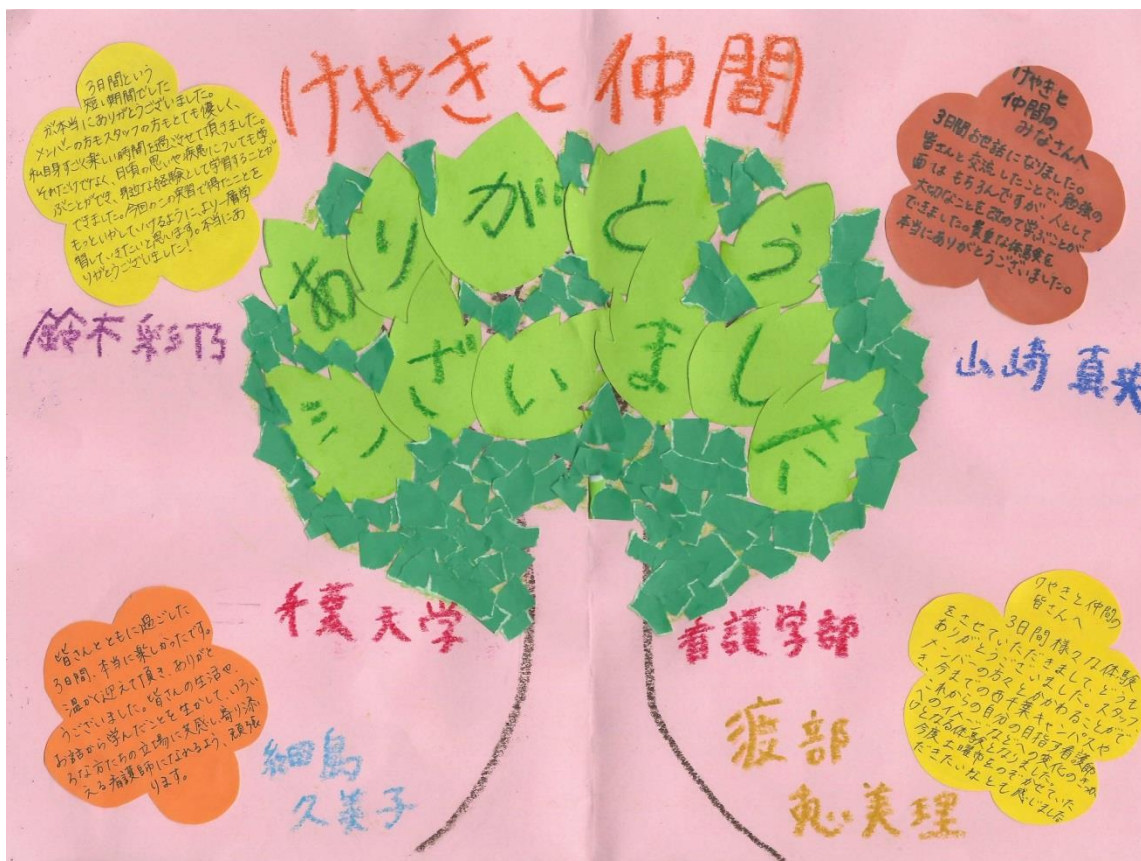 けやきと仲間
3日間という
短い期間でした
が本当にありがとうございました。
メンバーの方もスタッフの方もとても優しく、
私自身すごく楽しい時間を過ごせて頂きました。
それだけでなく、日頃の思いや疾患についても学
ぶことができ、身近な経験として学習することが
できました。今回のこの実習で得たことを
もっといかしていけるように、より一層学
習していきたいと思います。本当にあ
りがとうございました!
鈴木 彩乃
けやきと
仲間の
みなさんへ
3日間お世話になりました。
皆さんと交流したことで、勉強の
面はもちろんですが、人として
大切なことを改めて学ぶことが
できました。貴重な体験を
本当にありがとうございました。
山崎 真央
ありがとう
ございました
千葉大学
看護学部
皆さんとともに過ごした
3日間、本当に楽しかったです。
温かく迎えて頂き、ありがと
うございました。皆さんの生活や
お話から学んだことを生かして、いろい
ろな方たちの立場に共感し寄り添
える看護師になれるよう、頑張
ります。
細島
久美子
けやきと仲間の
皆さんへ
3日間様々な体験
をさせていただきまして、どうも
ありがとうございました。スタッフ
メンバーの方々とかかわることがで
き、今までの
これからの自分の目指す看護師
へのイメージなどへの変化のきっか
けとなる体験となりました。
今度、土曜市をのぞかせていた
だきたいなとも感じました
渡部
恵美理